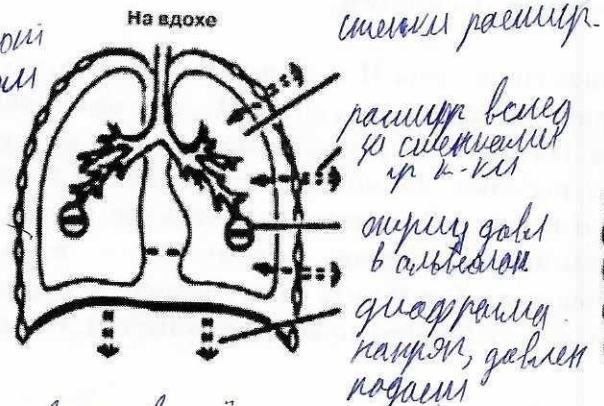 На вдохе
стенки расшир.
расшир вслед
за стенками
гр к-ки
отриц давл
в альвеолах
диафрагма
напряг, давлен
падает